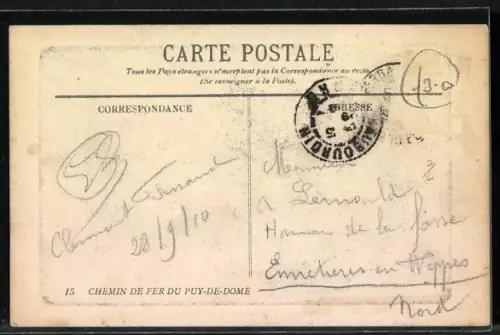 CARTE POSTALE
Tous les Pays étrangers n'acceptent pas la Correspondance au recto
(Se renseigner à la Poste).
CORRESPONDANCE
ADRESSE
HAUBOURDIN
13-0
Clermont Ferrand
28/9/10
Monsieur
A Lernould
Hameau de la fosse
Ennetières-en Weppes
Nord
15 CHEMIN DE FER DU PUY-DE-DOME